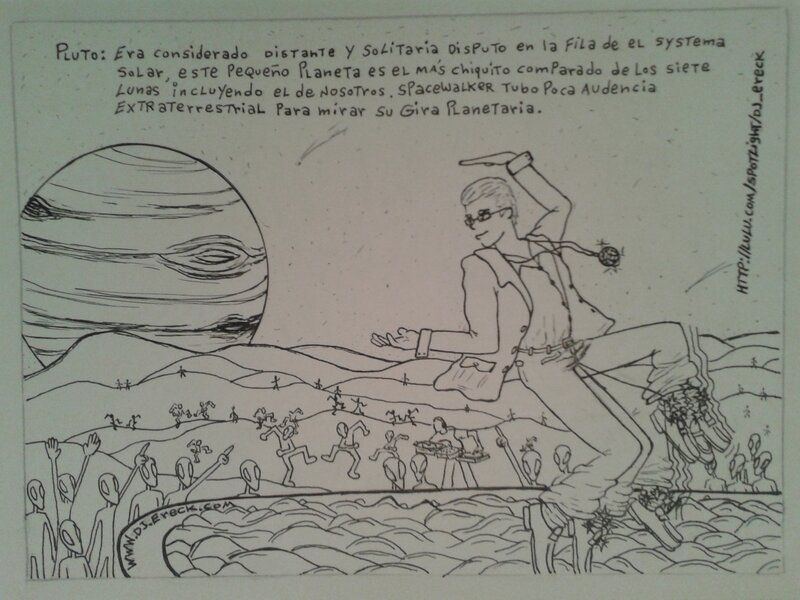 PLUTO: Era considerado DISTANTE Y SoliTaria DISPUTO en la Fila de el SYSTEMA
SoLar, este Pequeño PLaneta es eL MÁS chiquito comparado de Los siete
Lunas incluyendo el de NOSOTROS. SPACEWALKER TuBo Poca AuDencia
EXTraTerrestriaL Para mirar Su Gira PLanetaria.
HTTP://LULU.COM/SPOTLIGHT/DJ_ERECK
WWW.DJ-ERECK.COM